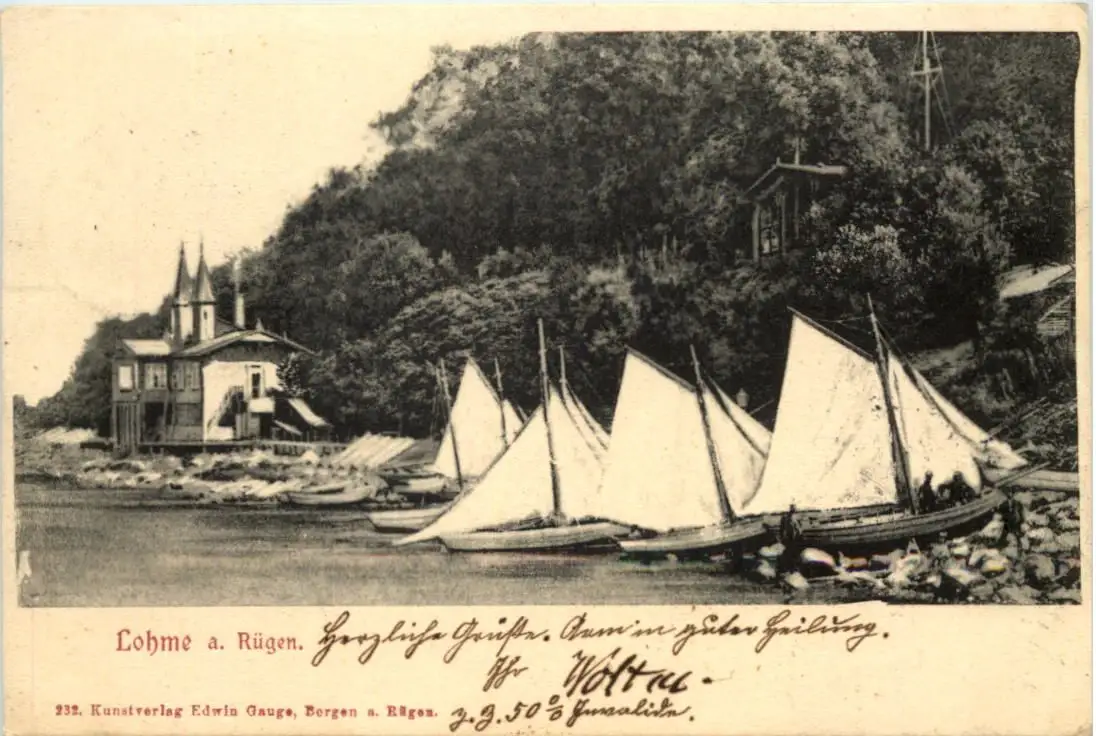 Lohme a. Rügen. Herzliche Grüße. Arm in guter Heilung.
Ihr
z. Z. 50 % Invalide.
232. Kunstverlag Edwin Gauge, Bergen a. Rügen.